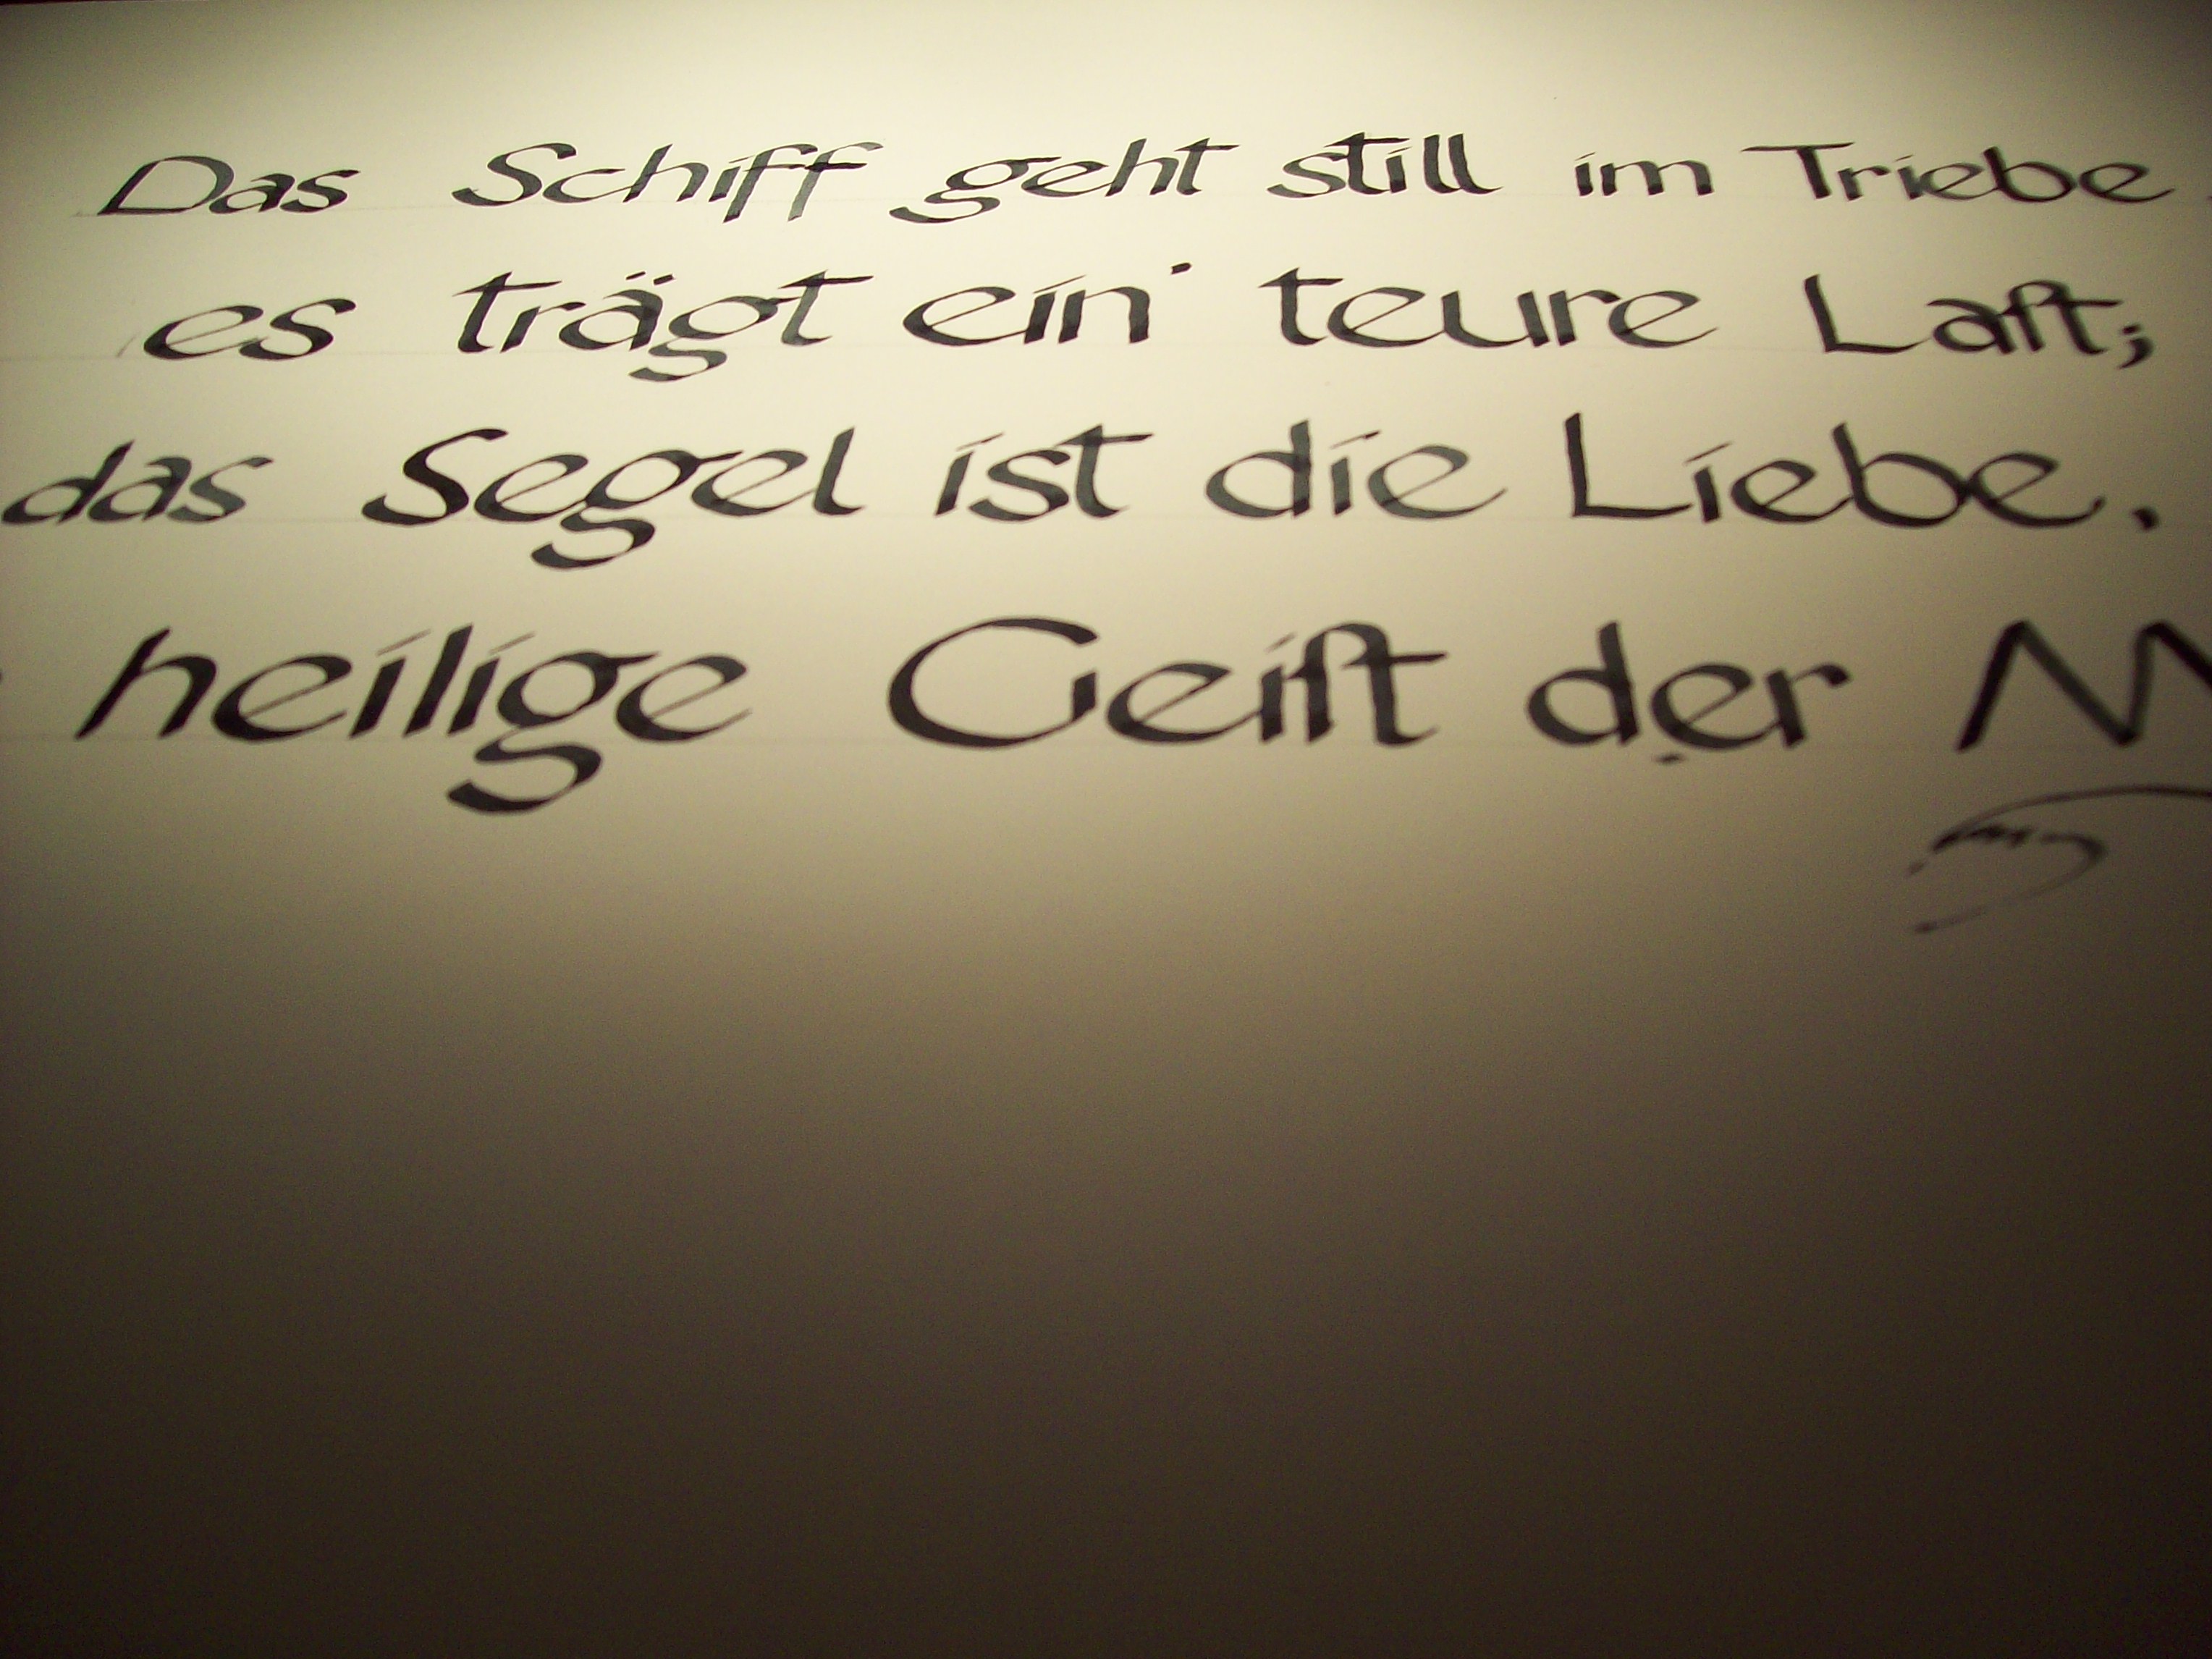 Das Schiff geht still im Triebe
es trägt ein' teure Laſt;
das Segel ist die Liebe.
heilige Geiſt der M